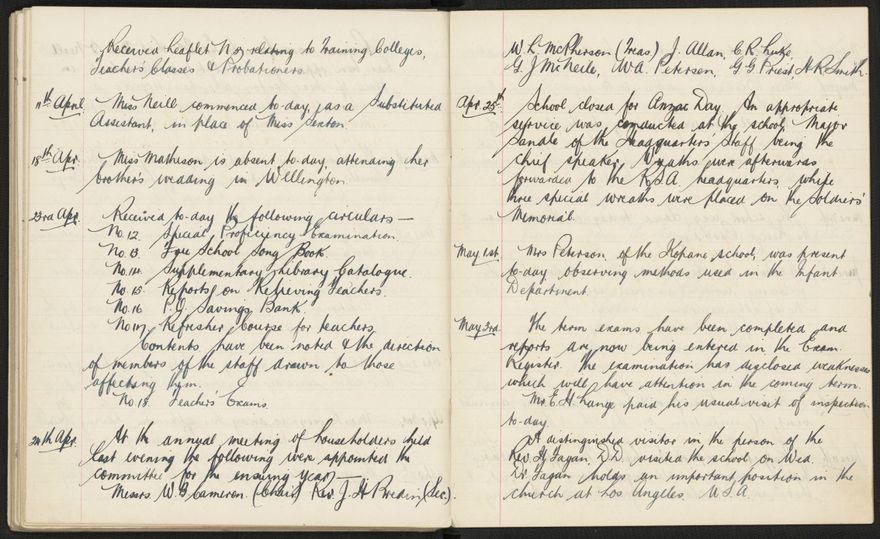 Received Leaflet No 3 relating to Training Colleges,
Teacher's Classes & Probationers.
11th April Miss Neill commenced to-day, as a Substituted
Assistant, in place of Miss Sexton.
18th Apr. Miss Matheson is absent to-day, attending her
brother's wedding in Wellington.
23rd Apr. Received to-day the following circulars—
No. 12. Special Proficiency Examination.
No. 13. School Song Book.
No. 14. Supplementary Library Catalogue.
No. 15. Reports on Relieving Teachers.
No. 16 P.O. Savings Bank.
No 17. Refresher Course for teachers.
Contents have been noted & the direction
of members of the staff drawn to those
affecting them.
No. 18. Teachers' Exams.
24th Apr. At the annual meeting of householders held
last evening the following were appointed the
committee for the ensuing year—
Messrs. W. G. Cameron. (Chair) Rev. J. H. Bredin, (Sec).
W. L. McPherson (Treas.) J. Allan, C. R. Luke,
G. J. McNeile, W. A. Peterson, G. G. Priest, H. R. Smith.
Apr. 25th. School closed for Anzac Day. An appropriate
service was conducted at the school, Major
Sandle of the Headquarters Staff being the
chief speaker. Wreaths were afterwards
forwarded to the R.S.A. headquarters, while
three special wreaths were placed on the Soldiers'
Memorial.
May 1st. Mrs Peterson, of the Kopane school, was present
to-day observing methods used in the Infant
Department.
May 3rd. The term exams have been completed and
reports are now being entered in the Exam.
Register. The examination has disclosed weaknesses
which will have attention in the coming term.
Mr. E. H. Lange paid his usual visit of inspection
to-day.
A distinguished visitor in the person of the
Rev. Fagan, D.D. visited the school on Wed.
Dr Fagan holds an important position in the
church at Los Angeles. U.S.A.